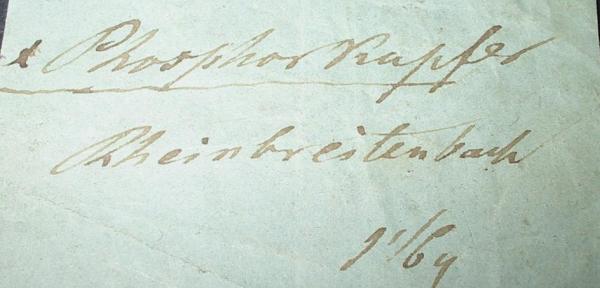 Phosphorkupfer
Rheinbreitenbach